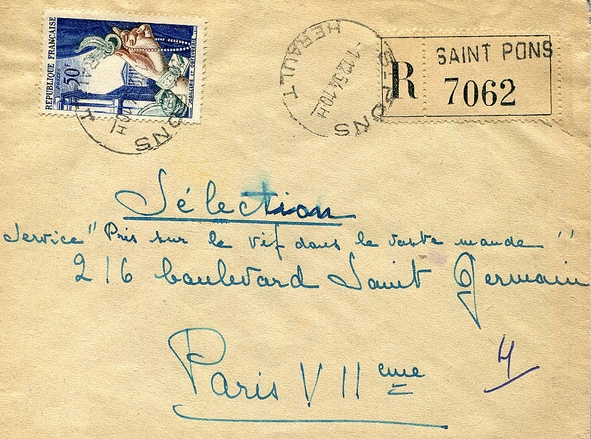 REPUBLIQUE FRANÇAISE
50F
S-PONS
HERAULT
-1-12 54 10H
R
SAINT PONS
7062
Sélection
Service "Pris sur le vif dans le vaste monde"
216 boulevard Saint Germain
Paris VII eme
4